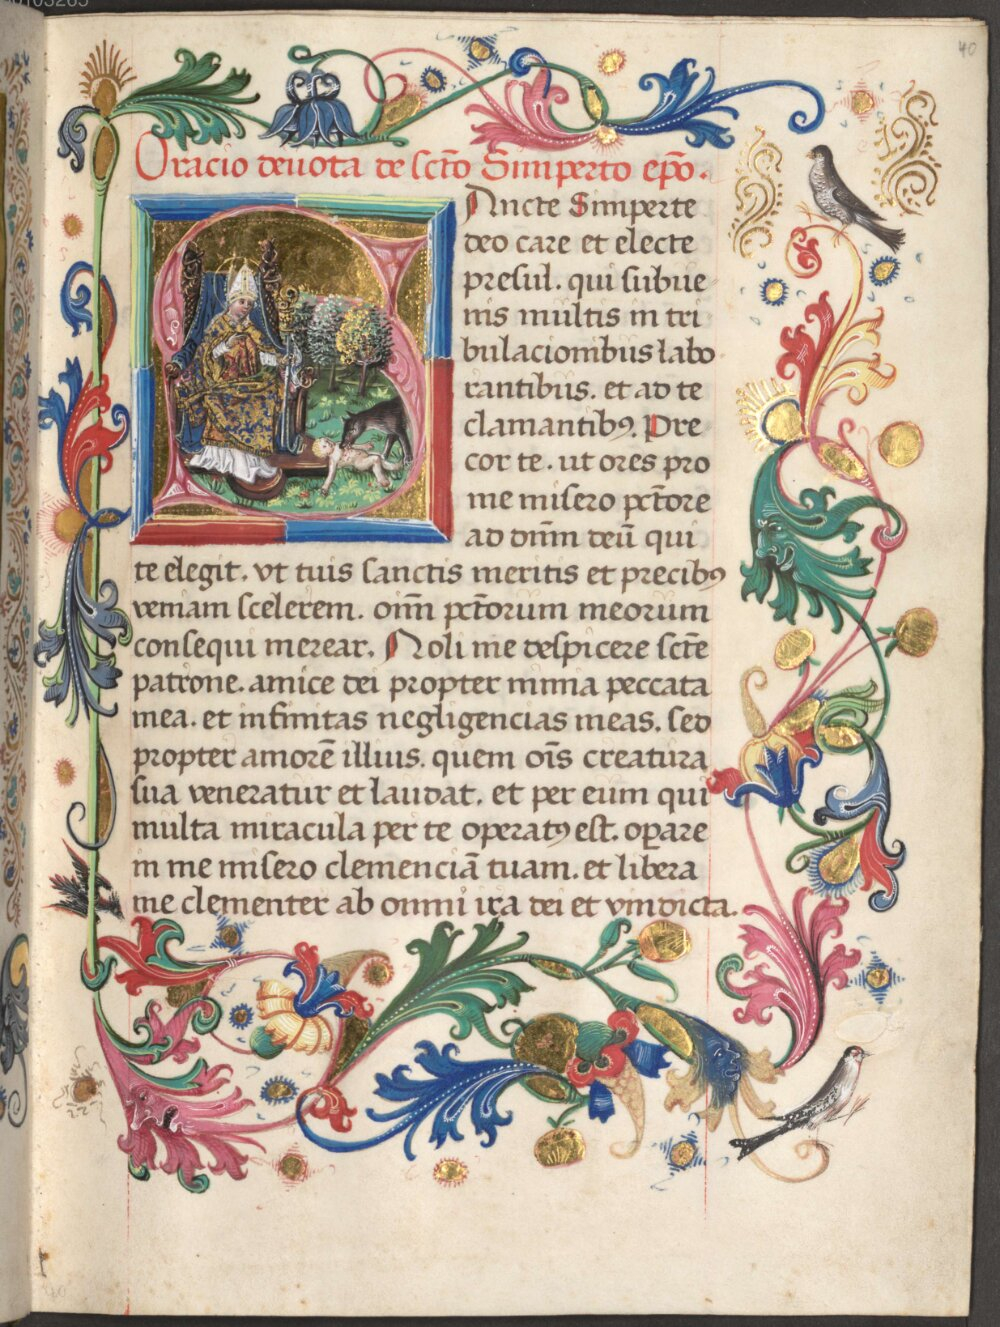 40
Oracio deuota de sctō Simperto ep̄o.
SAncte Simperte
deo care et electe
presul. qui subue-
nis multis in tri
bulacionibus labo
rantibus. et ad te
clamantibꝰ. Pre
cor te. ut ores pro
me misero pctōre
ad dnm̄ deū qui
te elegit. vt tuis sanctis meritis et precibꝰ
veniam scelerem. om̄ pctōrum meorum
consequi merear. Noli me despicere sctē
patrone. amice dei propter nimia peccata
mea. et infinitas negligencias meas. sed
propter amorē illius. quem oīs creatura
sua veneratur et laudat. et per eum qui
multa miracula per te operatꝰ est. opare
in me misero clemenciā tuam. et libera
me clementer ab omni ira dei et vindicta.